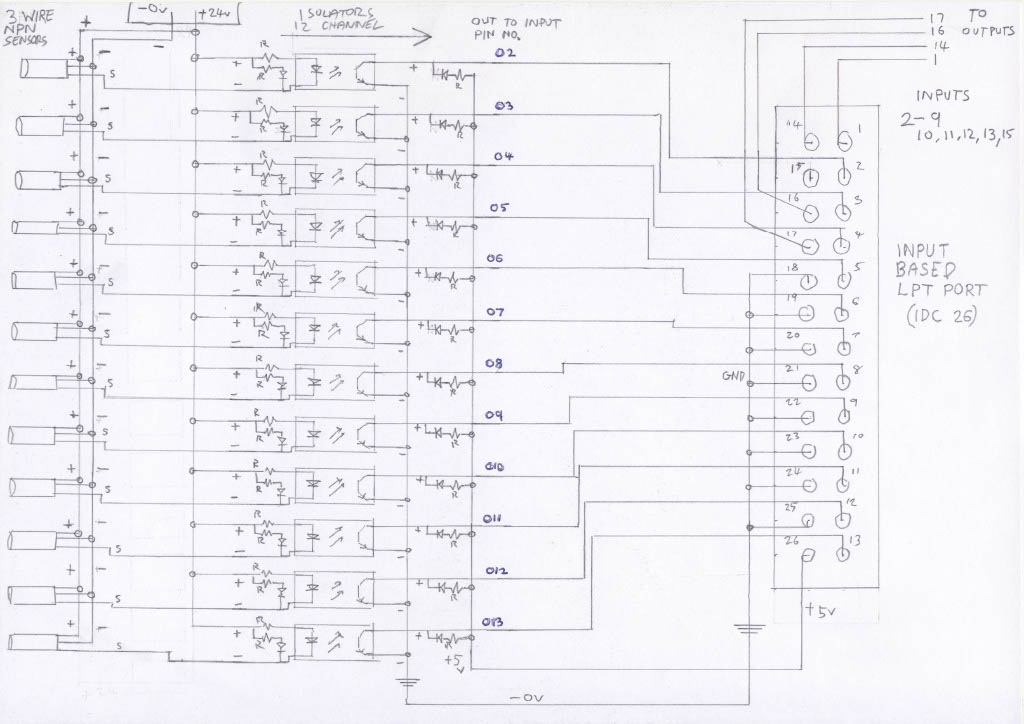 3 WIRE
NPN
SENSORS
-0V
+24V
ISOLATORS
12 CHANNEL
OUT TO INPUT
PIN NO.
17
16
14
1
TO
OUTPUTS
INPUTS
2-9
10, 11, 12, 13, 15
INPUT
BASED
LPT PORT
(IDC 26)
+ -
S
R
R
+
-
+
-
R
02
+ -
S
R
R
+
-
+
-
R
03
+ -
S
R
R
+
-
+
-
R
04
+ -
S
R
R
+
-
+
-
R
05
+ -
S
R
R
+
-
+
-
R
06
+ -
S
R
R
+
-
+
-
R
07
+ -
S
R
R
+
-
+
-
R
08
+ -
S
R
R
+
-
+
-
R
09
+ -
S
R
R
+
-
+
-
R
010
+ -
S
R
R
+
-
+
-
R
011
+ -
S
R
R
+
-
+
-
R
012
S
R
R
+
-
+
-
R
013
+5V
14 1
15 2
16 3
17 4
18 5
19 6
20 7
21 8
22 9
23 10
24 11
25 12
26 13
GND
+5V
-0V